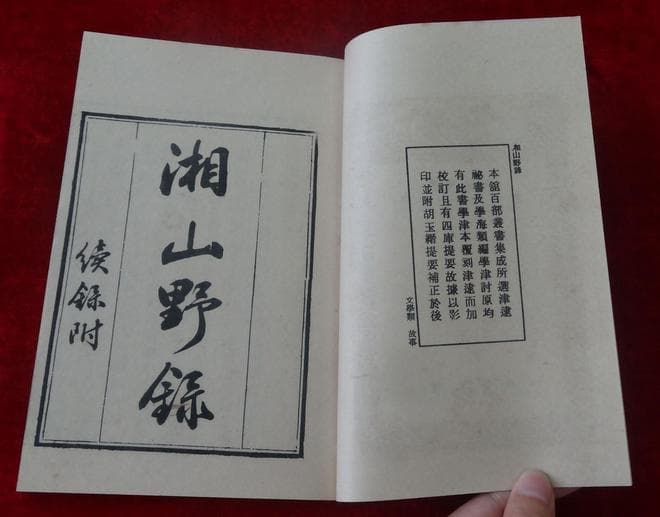 湘山野錄
本舘百部叢書集成所選津逮
祕書及學海類編學津討原均
有此書學津本覆刻津逮而加
校訂且有四庫提要故據以影
印並附胡玉縉提要補正於後
文學類 故事
湘山野錄
續錄附